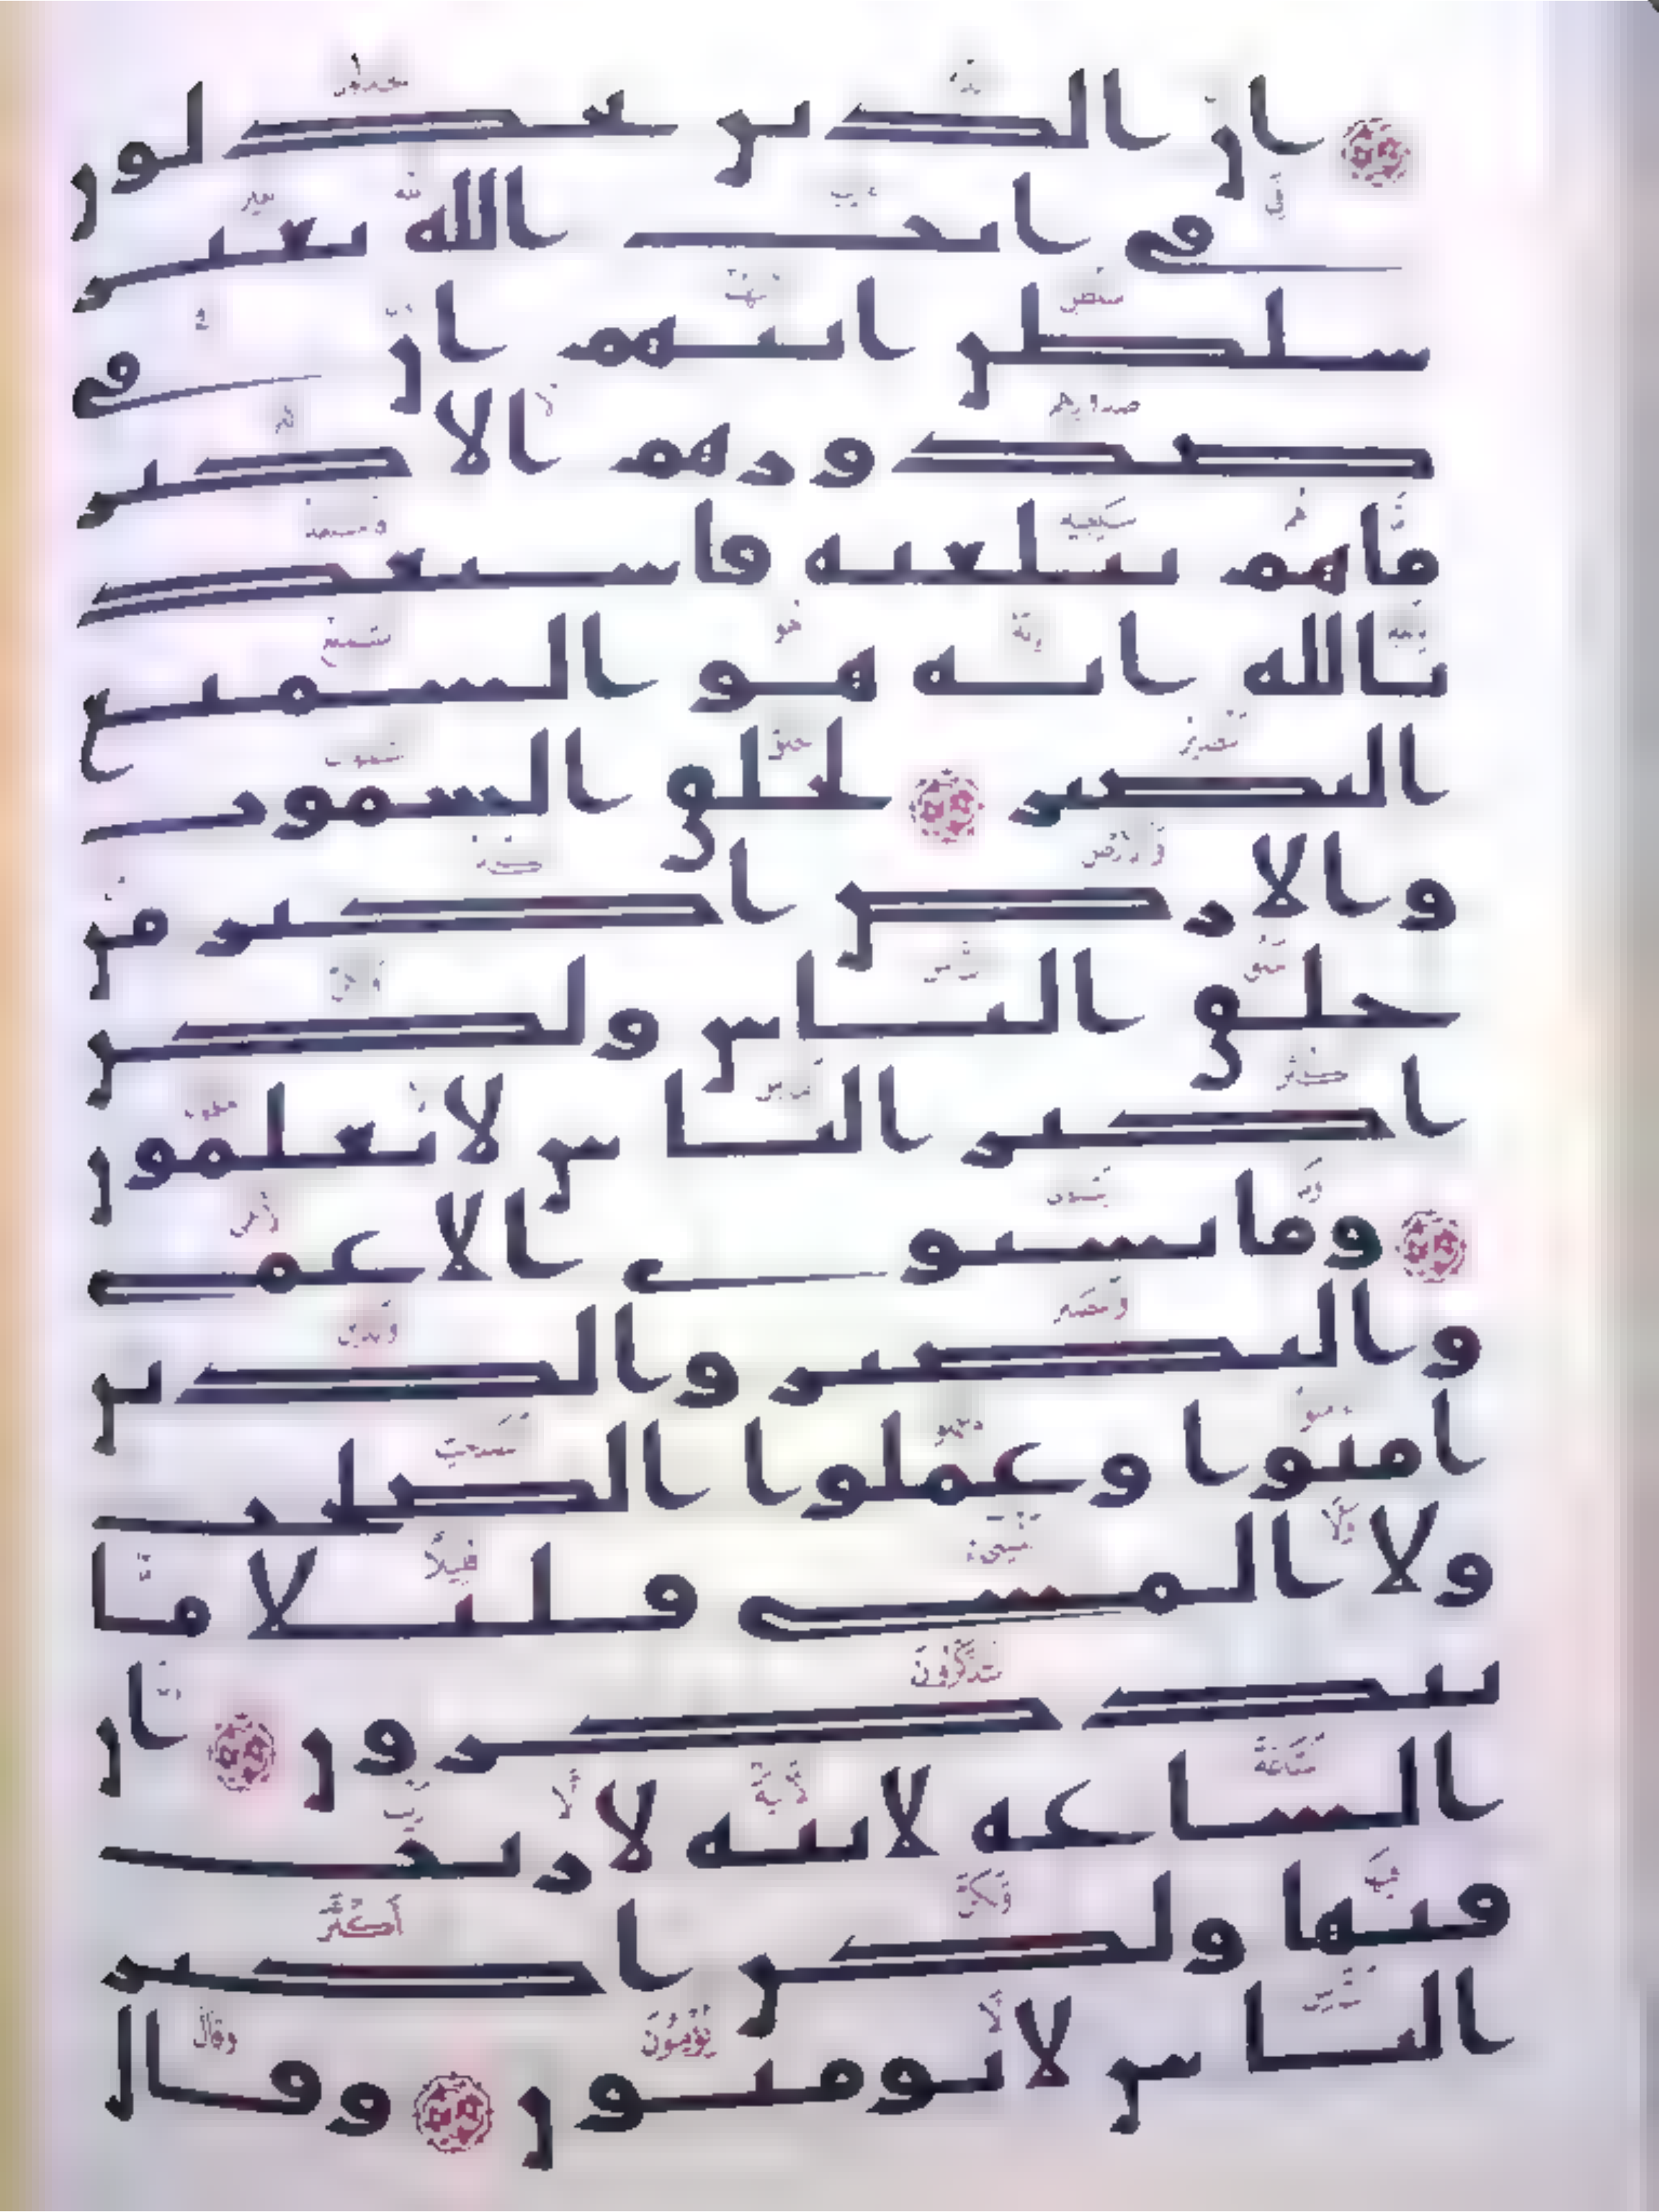 ان الذين يجدلون
في ايت الله بغير
سلطن اتيهم ان في
صدورهم الا كبر
ما هم ببلغيه فاستعذ
بالله انه هو السميع
البصير لخلق السموت
والارض اكبر من
خلق الناس ولكن
اكثر الناس لا يعلمون
وما يستوي الاعمى
والبصير والذين
امنوا وعملوا الصلحت
ولا المسي قليلا ما
تتذكرون ان
الساعه لاتيه لا ريب
فيها ولكن اكثر
الناس لا يومنون وقال